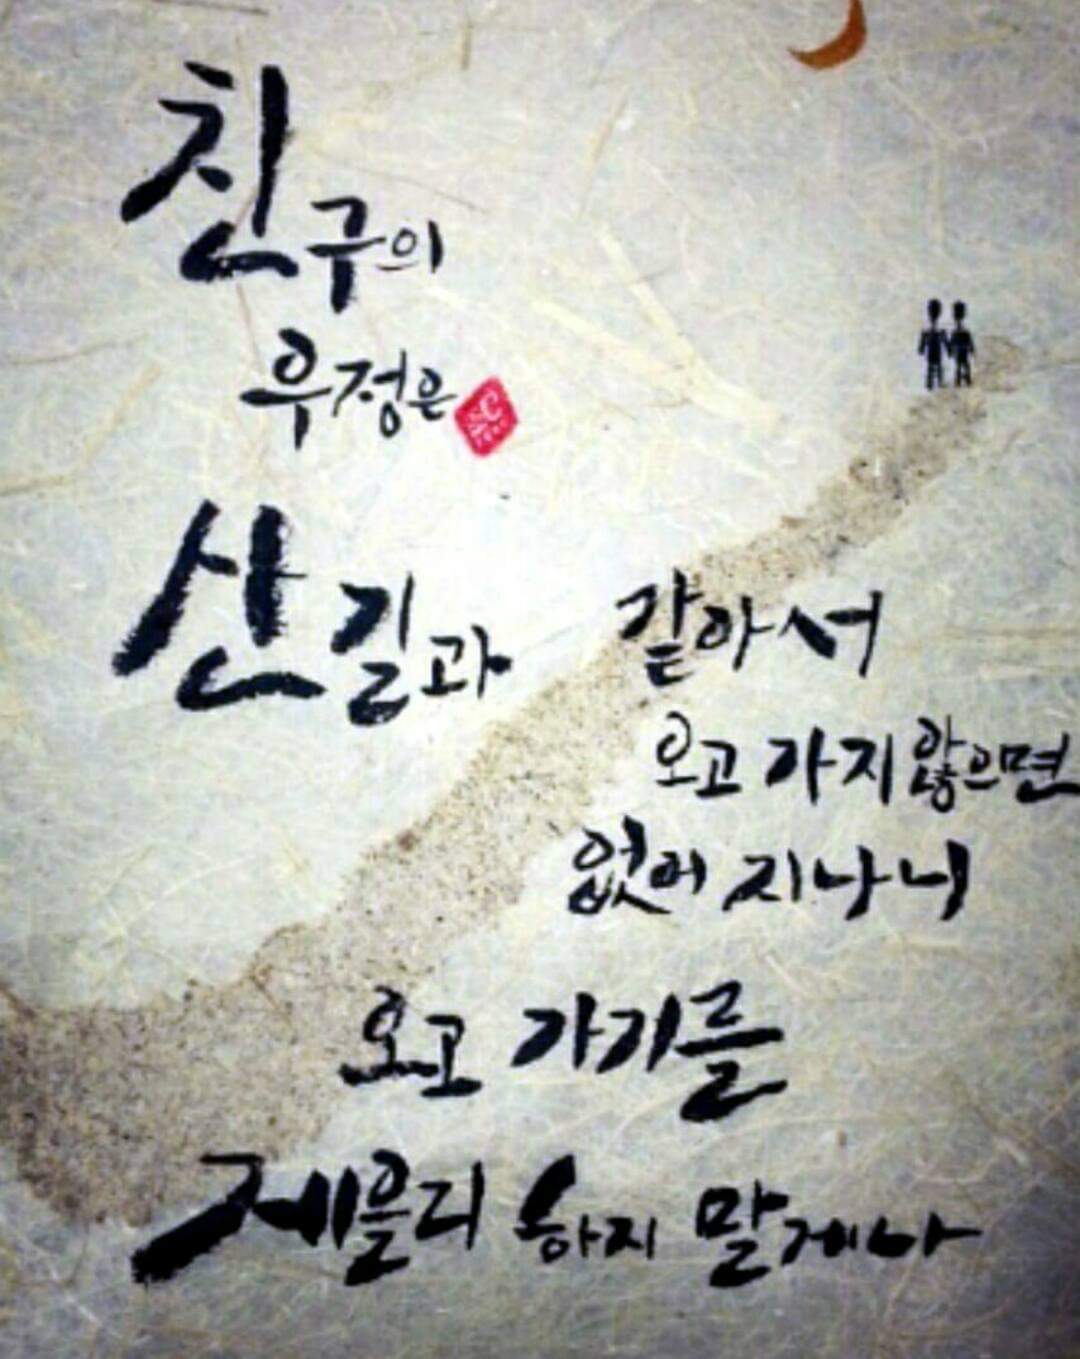 친구의
우정은
산길과 같아서
오고 가지 않으면
없어 지나니
오고 가기를
제을리 하지 말게나